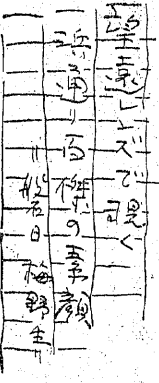 望遠レンズで覗く
浜通り百様の素顔
=磐日 梅野生=